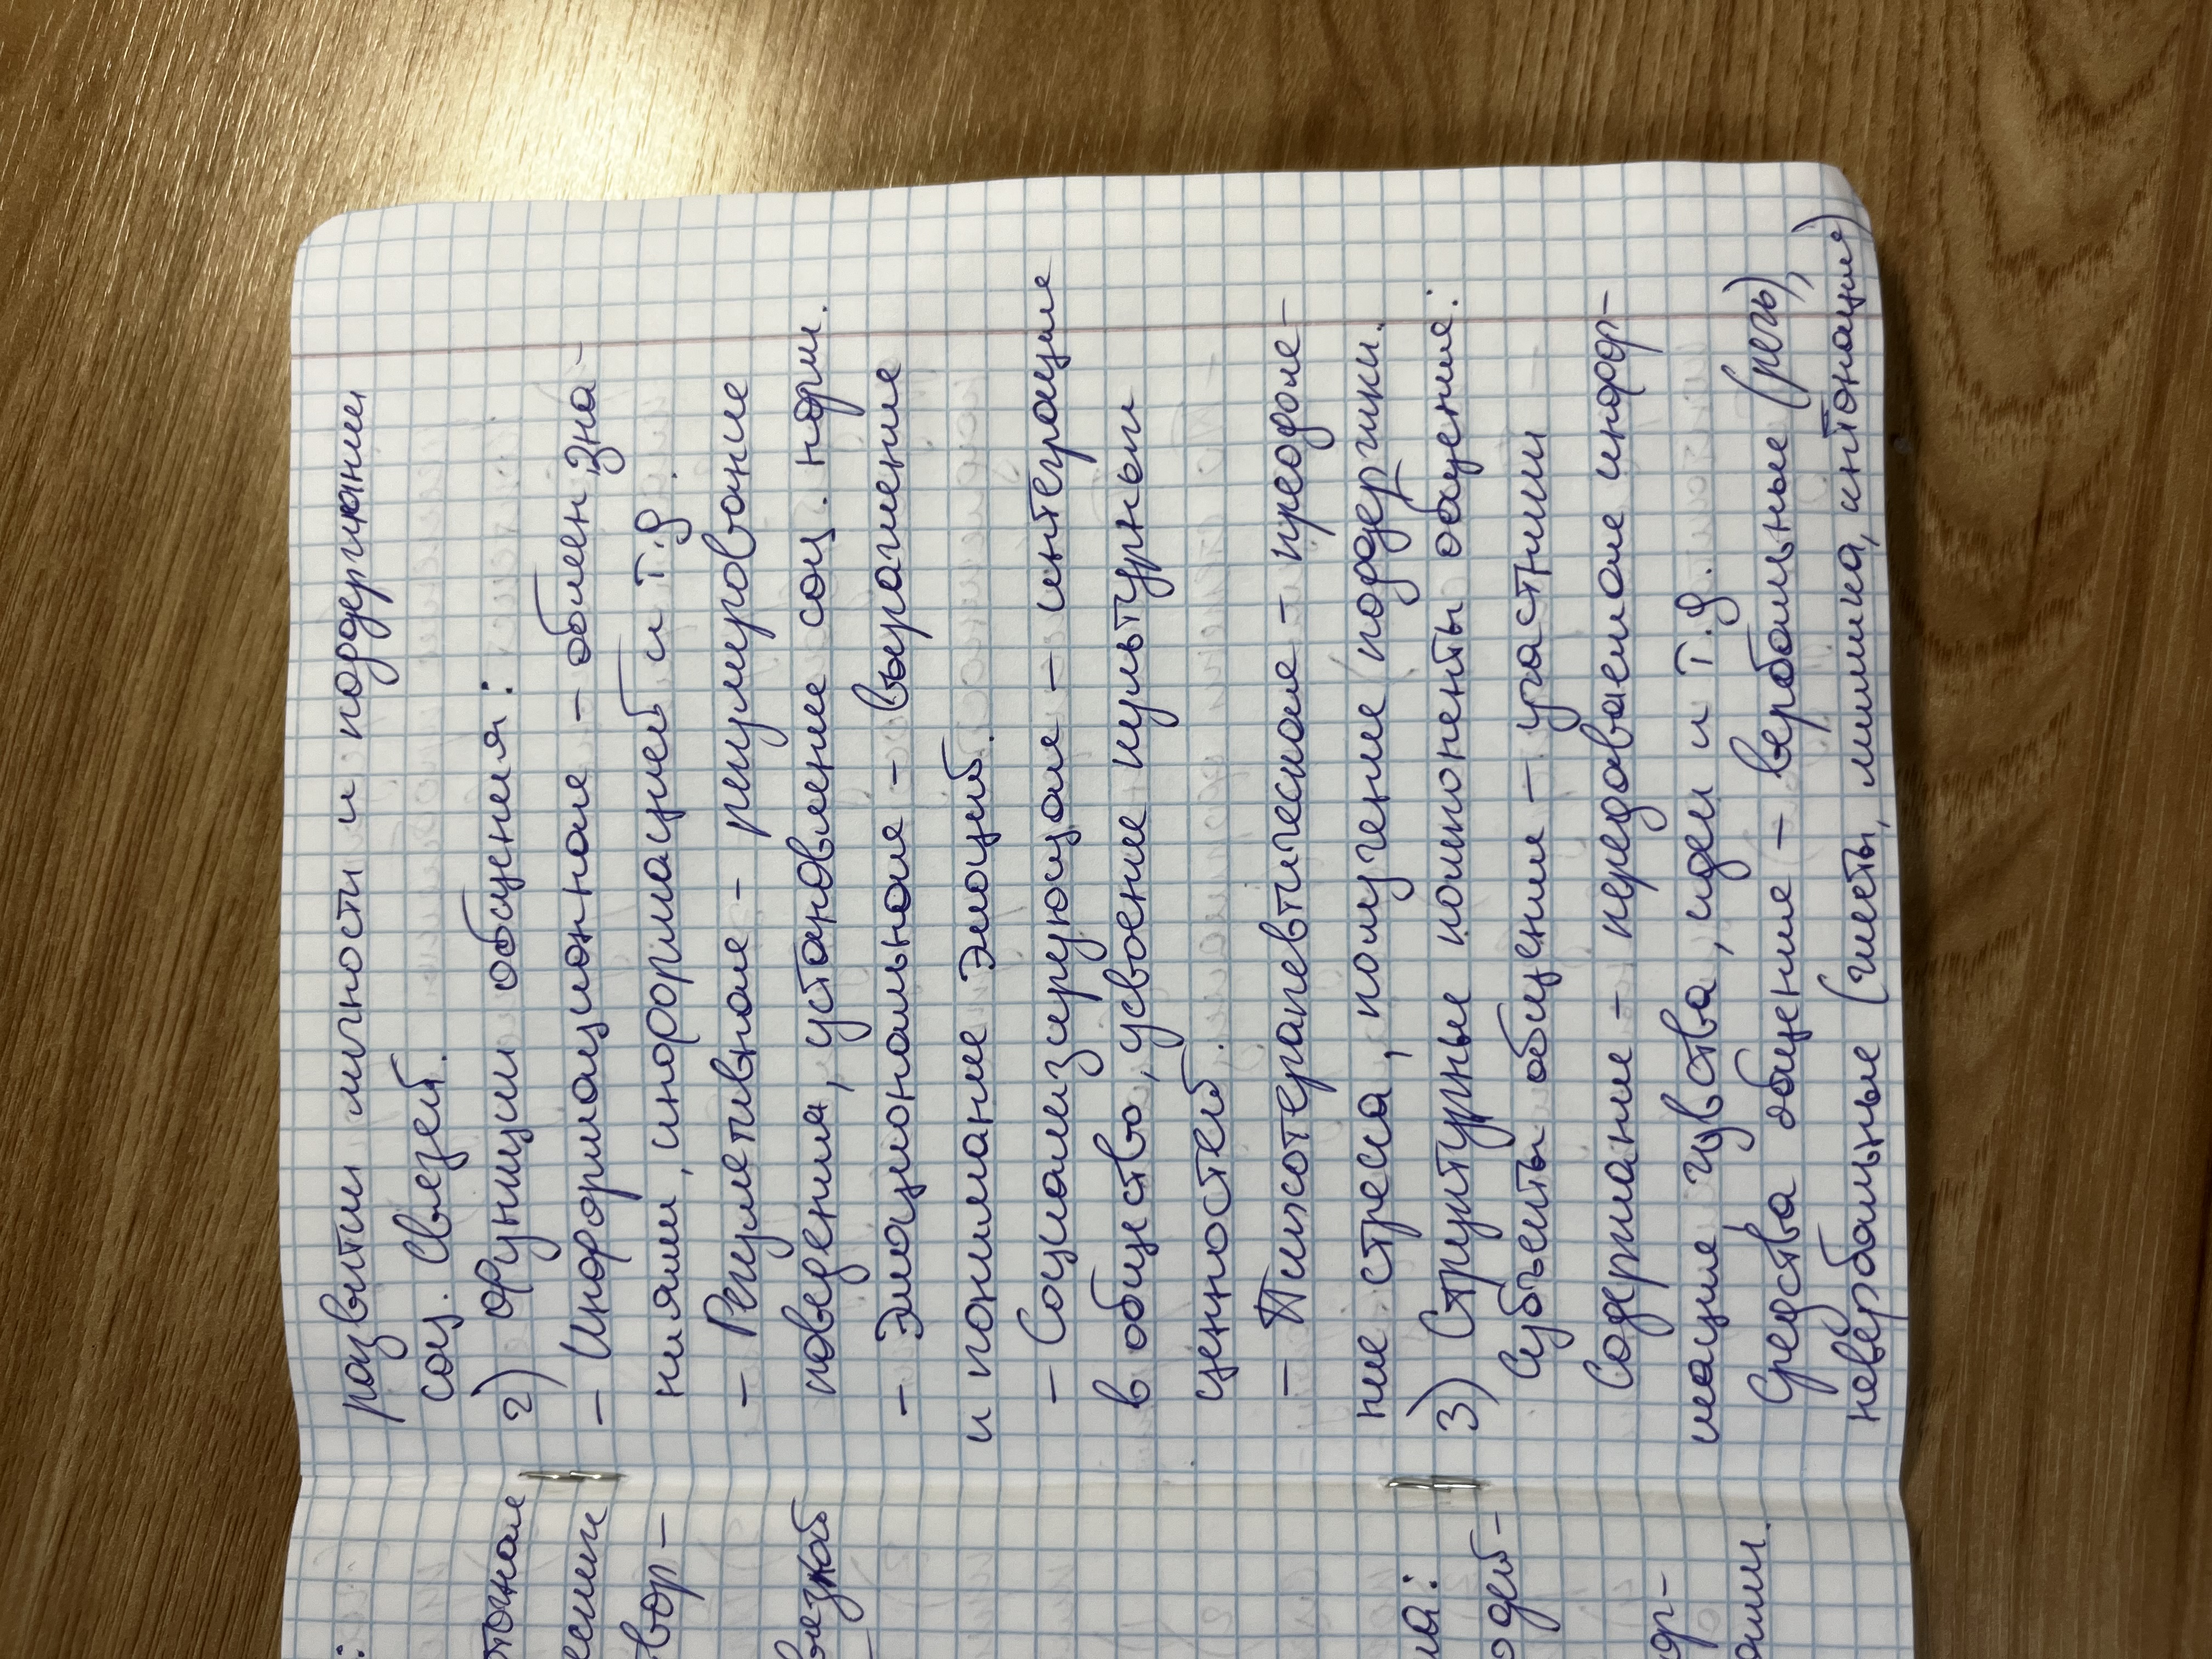 развитии личности и поддержании
соц. связей.
2) функции общения:
- Информационная - обмен зна-
ниями, информацией и т.д.
- Регулятивная - регулирование
поведения, установление соц. норм.
- Эмоциональная - выражение
и понимание эмоций.
- Социализирующая - интеграция
в общество, усвоение культурных
ценностей.
- Психотерапевтическая - преодоле-
ние стресса, получение поддержки.
3) Структурные компоненты общения:
Субъекты общения - участники
Содержание - передаваемая инфор-
мация чувства, идеи и т.д.
Средства общение - вербальные (речь),
невербальные (жесты, мимика, интонация)
вор-
одей-